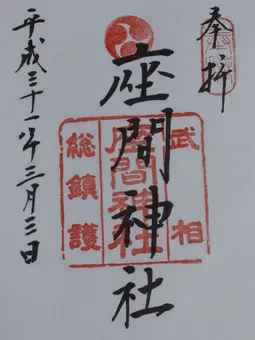 奉拝
座間神社
武相
座間神社
総鎮護
平成三十一年三月三日